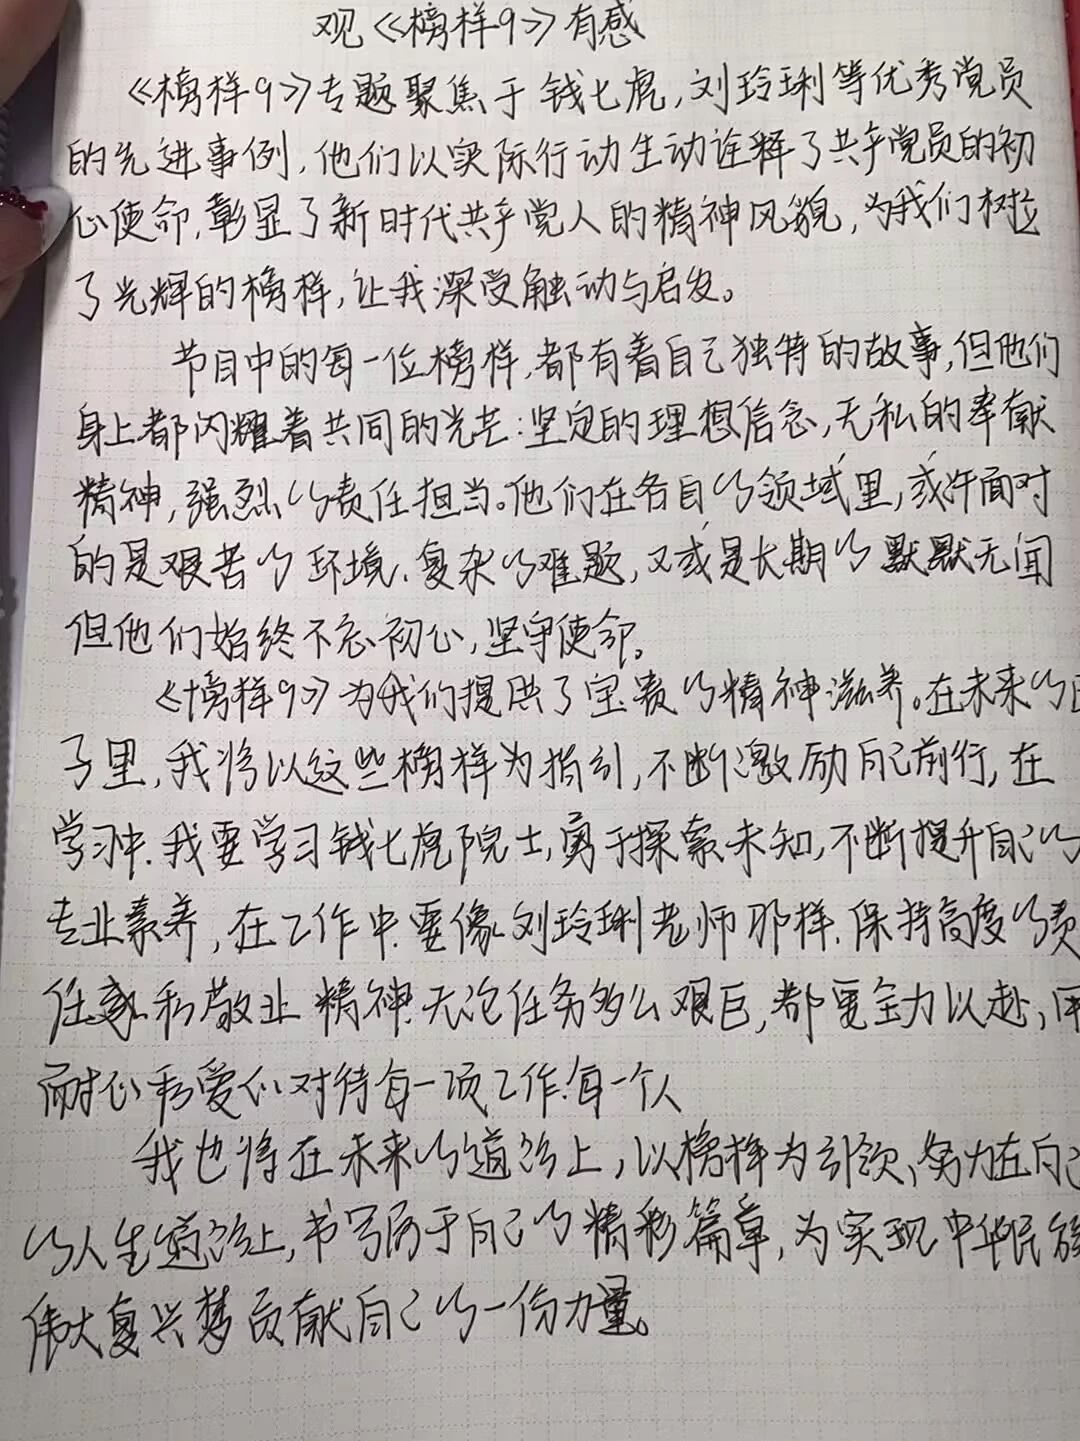 观《榜样9》有感
《榜样9》专题聚焦于钱七虎,刘玲琍等优秀党员
的先进事例,他们以实际行动生动诠释了共产党员的初
心使命,彰显了新时代共产党人的精神风貌,为我们树立
了光辉的榜样,让我深受触动与启发。
节目中的每一位榜样,都有着自己独特的故事,但他们
身上都闪耀着共同的光芒:坚定的理想信念,无私的奉献
精神,强烈的责任担当。他们在各自的领域里,或许面对
的是艰苦的环境、复杂的难题,又或是长期的默默无闻
但他们始终不忘初心,坚守使命。
《榜样9》为我们提供了宝贵的精神滋养。在未来的日
子里,我将以这些榜样为指引,不断激励自己前行,在
学习中、我要学习钱七虎院士,勇于探索未知,不断提升自己的
专业素养,在工作中、要像刘玲琍老师那样、保持高度的责
任感和敬业精神、无论任务多么艰巨,都要全力以赴,用
耐心和爱心对待每一项工作、每一个人
我也将在未来的道路上,以榜样为引领、努力在自己
的人生道路上,书写属于自己的精彩篇章,为实现中华民族
伟大复兴梦贡献自己的一份力量。